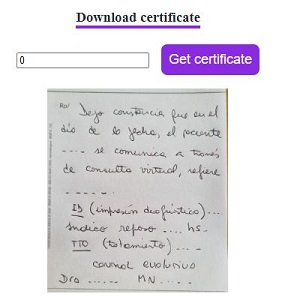 Download certificate
0
Get certificate
Rp/
Dejo constancia que en el
día de la fecha, el paciente
.... se comunica a través
de consulta virtual, refiere
.....
ID (impresión diagnóstica)...
Indico reposo .... hs.
TTO (tratamiento)... .
control evolutivo
Dra ..... MN .....